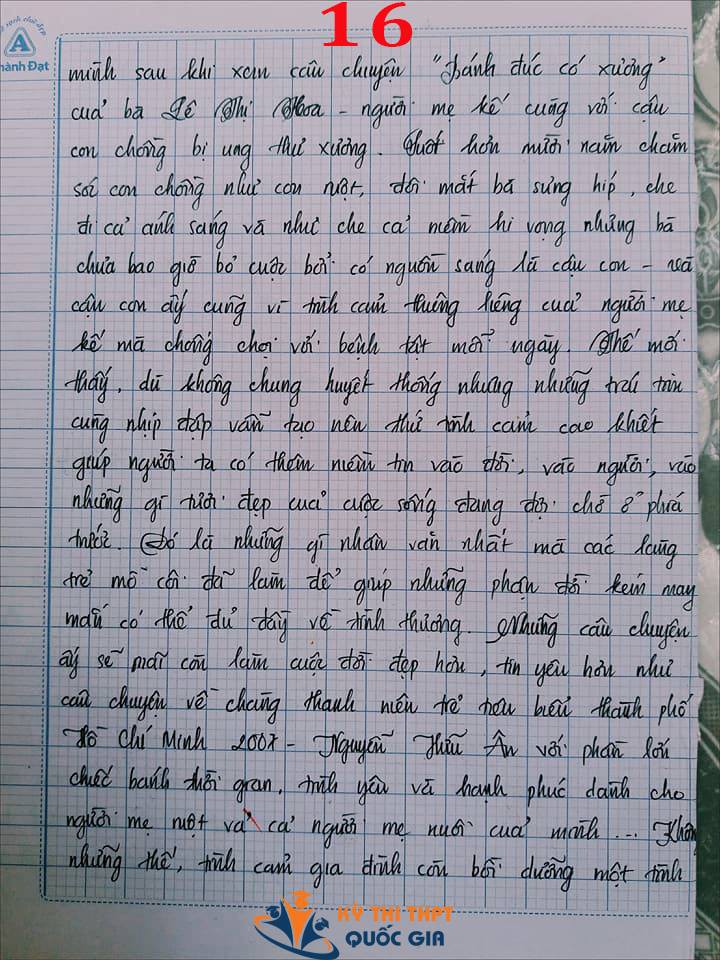 16
A
hành Đạt
mình sau khi xem câu chuyện "Bánh đúc có xương"
của bà Lê Thị Hoa - người mẹ kế cùng với cậu
con chồng bị ung thư xương. Suốt hơn mười năm chăm
sóc con chồng như con ruột, đôi mắt bà sưng híp, che
đi cả ánh sáng và như che cả niềm hi vọng nhưng bà
chưa bao giờ bỏ cuộc bởi có nguồn sáng là cậu con - mà
cậu con ấy cũng vì tình cảm thiêng liêng của người mẹ
kế mà chống chọi với bệnh tật mỗi ngày. Thế mới
thấy, dù không chung huyết thống nhưng những trái tim
cùng nhịp đập vẫn tạo nên thứ tình cảm cao khiết
giúp người ta có thêm niềm tin vào đời, vào người, vào
những gì tươi đẹp của cuộc sống đang đợi chờ ở phía
trước. Đó là những gì nhân văn nhất mà các làng
trẻ mồ côi đã làm để giúp những phận đời kém may
mắn có thể đủ đầy về tình thương. Những câu chuyện
ấy sẽ mãi còn làm cuộc đời đẹp hơn, tin yêu hơn như
câu chuyện về chàng thanh niên trẻ tiêu biểu thành phố
Hồ Chí Minh 2007 - Nguyễn Hữu Ân với phần lớn
chiếc bánh thời gian, tình yêu và hạnh phúc dành cho
người mẹ ruột và cả người mẹ nuôi của mình... Khôn
những thế, tình cảm gia đình còn bồi dưỡng một tình
KỲ THI THPT
QUỐC GIA